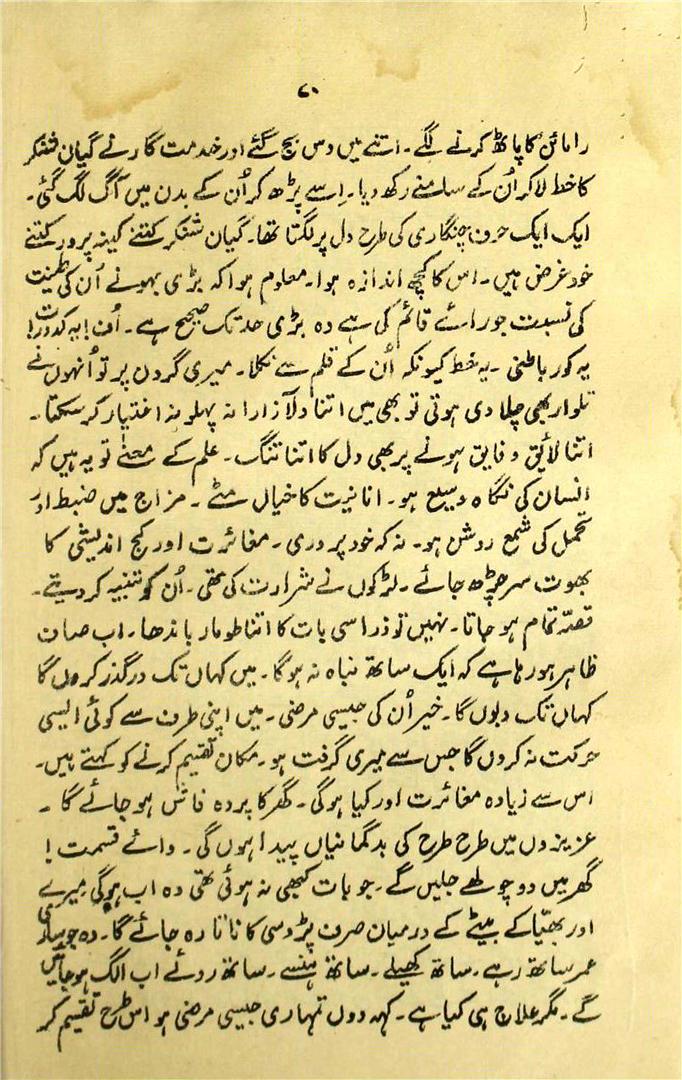 ۷۰
رامائن کا پاٹھ کرنے لگے۔ اتنے میں دس بج گئے اور خدمت گار نے گیان شنکر
کا خط لا کر اُن کے سامنے رکھ دیا۔ اِسے پڑھ کر اُن کے بدن میں آگ لگ گئی۔
ایک ایک حرف چنگاری کی طرح دل پر لگتا تھا۔ گیان شنکر کتنے کینہ پرور کتنے
خود غرض ہیں۔ اس کا کچھ اندازہ ہوا۔ معلوم ہوا کہ بڑی بہو نے اُن کی طینت
کی نسبت جو رائے قائم کی ہے وہ بڑی حد تک صحیح ہے۔ اُف! یہ کدورت!
یہ کور باطنی۔ یہ خط کیونکہ اُن کے قلم سے نکلا۔ میری گردن پر تو اُنہوں نے
تلوار بھی چلا دی ہوتی تو بھی میں اتنا دلآزارانہ پہلو نہ اختیار کر سکتا۔
اتنا لائق و فایق ہونے پر بھی دل کا اتنا تنگ۔ علم کے معنے تو یہ ہیں کہ
انسان کی نگاہ وسیع ہو۔ انانیت کا خیال مٹے۔ مزاج میں ضبط اور
تحمل کی شمع روشن ہو۔ نہ کہ خود پروری۔ مغائرت اور کج اندیشی کا
بھوت سر چڑھ جائے۔ لڑکوں نے شرارت کی تھی۔ اُن کو تنبیہ کر دیتے۔
قصّہ تمام ہو جاتا۔ نہیں تو ذرا سی بات کا اتنا طومار باندھا۔ اب صاف
ظاہر ہو رہا ہے کہ ایک ساتھ نباہ نہ ہوگا۔ میں کہاں تک درگذر کروں گا
کہاں تک دبوں گا۔ خیر اُن کی جیسی مرضی۔ میں اپنی طرف سے کوئی ایسی
حرکت نہ کروں گا جس سے میری گرفت ہو۔ مکان تقیم کرنے کو کہتے ہیں۔
اس سے زیادہ مغائرت اور کیا ہوگی۔ گھر کا پردہ فاش ہو جائے گا۔
عزیزوں میں طرح طرح کی بدگمانیاں پیدا ہوں گی۔ وائے قسمت!
گھر میں دو چولھے جلیں گے۔ جو بات کبھی نہ ہوئی تھی وہ اب ہوگی میرے
اور بھیّا کے بیٹے کے درمیان صرف پڑوسی کا ناتا رہ جائے گا۔ وہ جو ساری
عمر ساتھ رہے۔ ساتھ کھیلے۔ ساتھ ہنسے۔ ساتھ روئے اب الگ ہو جائیں
گے۔ مگر علاج ہی کیا ہے۔ کہہ دوں تمہاری جیسی مرضی ہو اس طرح تقیم کر